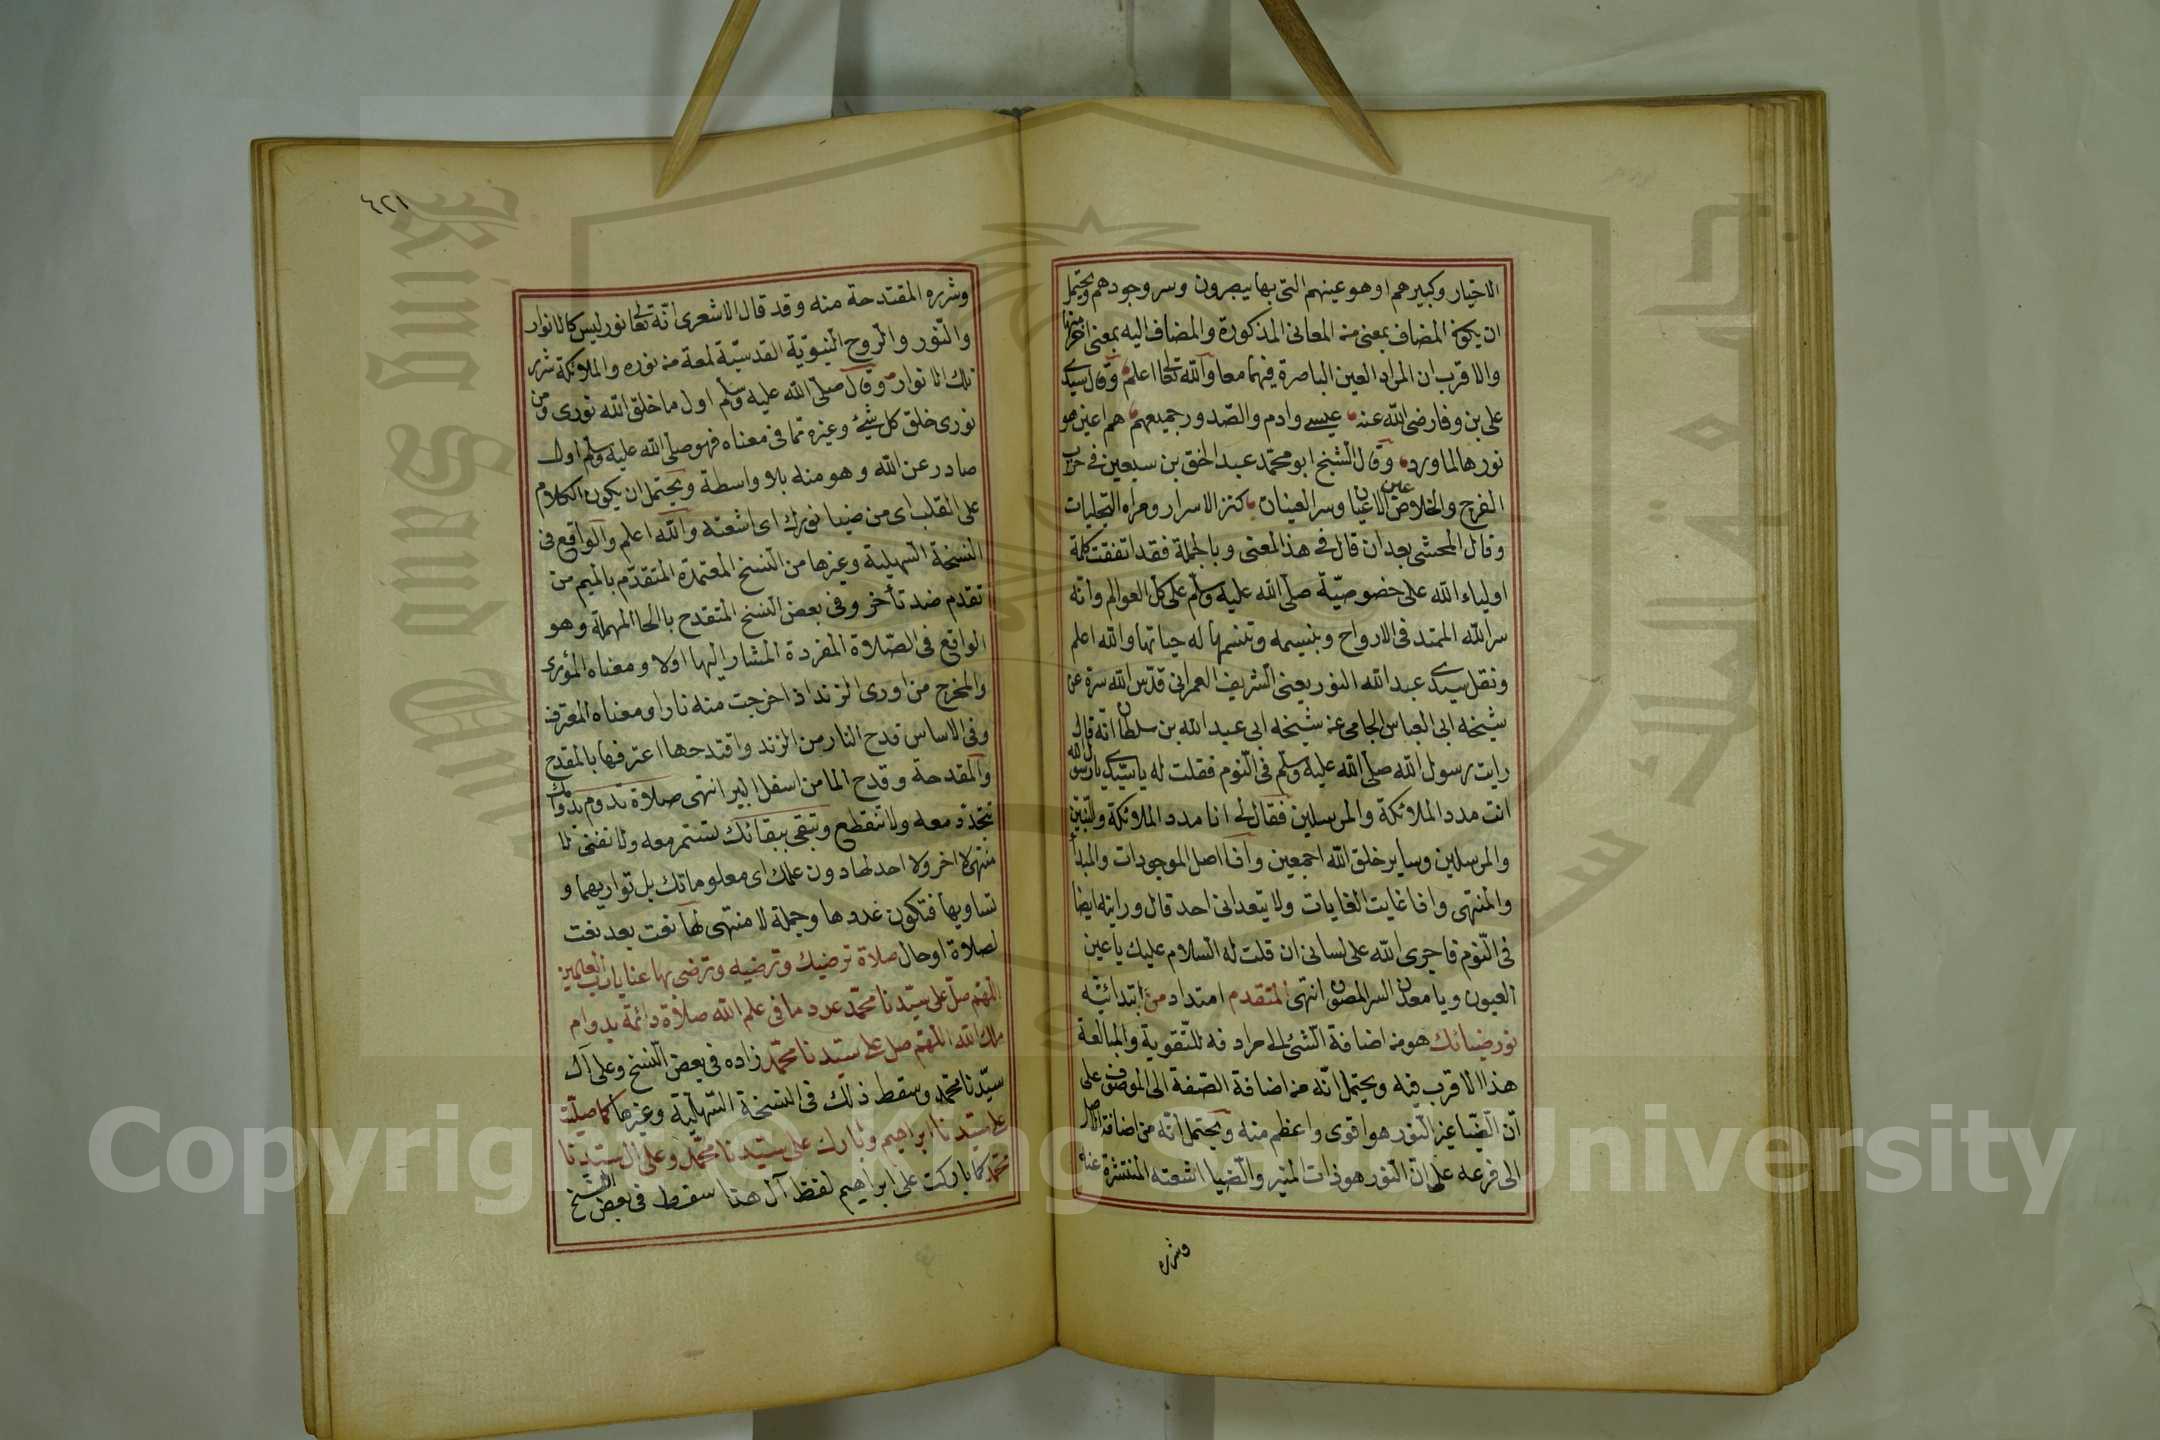 الاخيار وكبيرهم او هو عينهم التى بها يبصرون وسر وجودهم ويحتمل
ان يكون المضاف بمعنى من المعانى المذكورة والمضاف اليه بمعنى اخر منها
والاقرب ان المراد العين الباصرة فيهما معا والله تعالى اعلم وقال سيدى
على بن وفا رضى الله عنه عيسى وادم والصدور جميعهم هم اعين هو
نورها لما ورد وقال الشيخ ابو محمد عبد الحق بن سبعين فى حزب
الفرج والخلاص عين الاعيان وسر العينان كنز الاسرار ومراه التجليات
وقال المحشى بعد ان قال فى هذا المعنى وبالجملة فقد اتفقت كلمة
اولياء الله على خصوصيّة صلى الله عليه وسلم على كل العوالم وانه
سر الله الممتد فى الارواح وبنسيمه وتنسمها له حياتها والله اعلم
ونقل سيدى عبد الله النور يعنى الشريف العمرانى قدّس الله سره عن
شيخه ابى العباس الجامى عن شيخه ابى عبد الله بن سلطان انه قال
رايت رسول الله صلى الله عليه وسلم فى النوم فقلت له يا سيدى يا رسول الله
انت مدد الملائكة والمرسلين فقال لى انا مدد الملائكة والنبيين
والمرسلين وساير خلق الله اجمعين وانا اصل الموجودات والمبدأ
والمنتهى وانا غايت الغايات ولا يتعدانى احد قال ورايته ايضا
فى النوم فاجرى الله على لسانى ان قلت له السلام عليك يا عين
العيون ويا معدن السر المصون انتهى المتقدم امتداد من ابتدائيّه
نور ضيائك هو من اضافة الشئ الى مرادفه للتقوية والمبالغة
هذا الاقرب فيه ويحتمل انه من اضافة الصّفة الى الموصوف على
انّ الضيا غير النور هو اقوى واعظم منه ويحتمل انه من اضافة الاصل
الى فرعه على انّ النور هو ذات المنير والضيا اشعته المنتشرة عنه
وشرره
٤٢١
وشرره المقتدحة منه وقد قال الاشعرى انّه تعالى نور ليس كالانوار
والنّور والروح النبويّة القدسيّة لمعة من نوره والملائكة شرر
تلك الانوار وقال صلى الله عليه وسلم اول ما خلق الله نورى ومن
نورى خلق كل شئ وغيره مما فى معناه فهو صلى الله عليه وسلم اول
صادر عن الله وهو منه بلا واسطة ويحتمل ان يكون الكلام
على القلب اى من ضيا نورك اى اشعته والله اعلم والواقع فى
النسخة السهيلية وغيرها من النسخ المعتمدة المتقدّم بالميم من
تقدم ضد تأخر وفى بعض النسخ المتقدح بالحا المهملة وهو
الواقع فى الصّلاة المفردة المشار اليها اولا ومعناه المؤرى
والمخرج من اورى الزند اذ اخرجت منه نارا ومعناه المغترف
وفى الاساس قدح النار من الزند واقتدحها اغترفها بالمقدح
والمقدحة وقدح الما من اسفل البير انتهى صلاة تدوم بدوامك
تتجدّد معه ولا تنقطع وتبقى ببقائك تستمر معه ولا تفنى لا
منتهى لا اخر ولا احد لها دون علمك اى معلوماتك بل تواريهما و
تساويها فتكون غدوها وجملة لا منتهى لها نعت بعد نعت
لصلاة او حال صلاة ترضيك وترضيه وترضى بها عنا يا رب العلمين
اللهم صلّ على سيّدنا محمّد عدد ما فى علم الله صلاة دائمة بدوام
ملك الله اللهم صل على سيّدنا محمّد زاده فى بعض النّسخ وعلى آل
سيّدنا محمد وسقط ذلك فى النسخة السّهليّة وغيرها كما صلّيت
على سيّدنا ابراهيم وبارك على سيّدنا محمّد وعلى ال سيّدنا
محمّد كما باركت على ابراهيم لفظ آل هنا سقط فى بعض النسخ